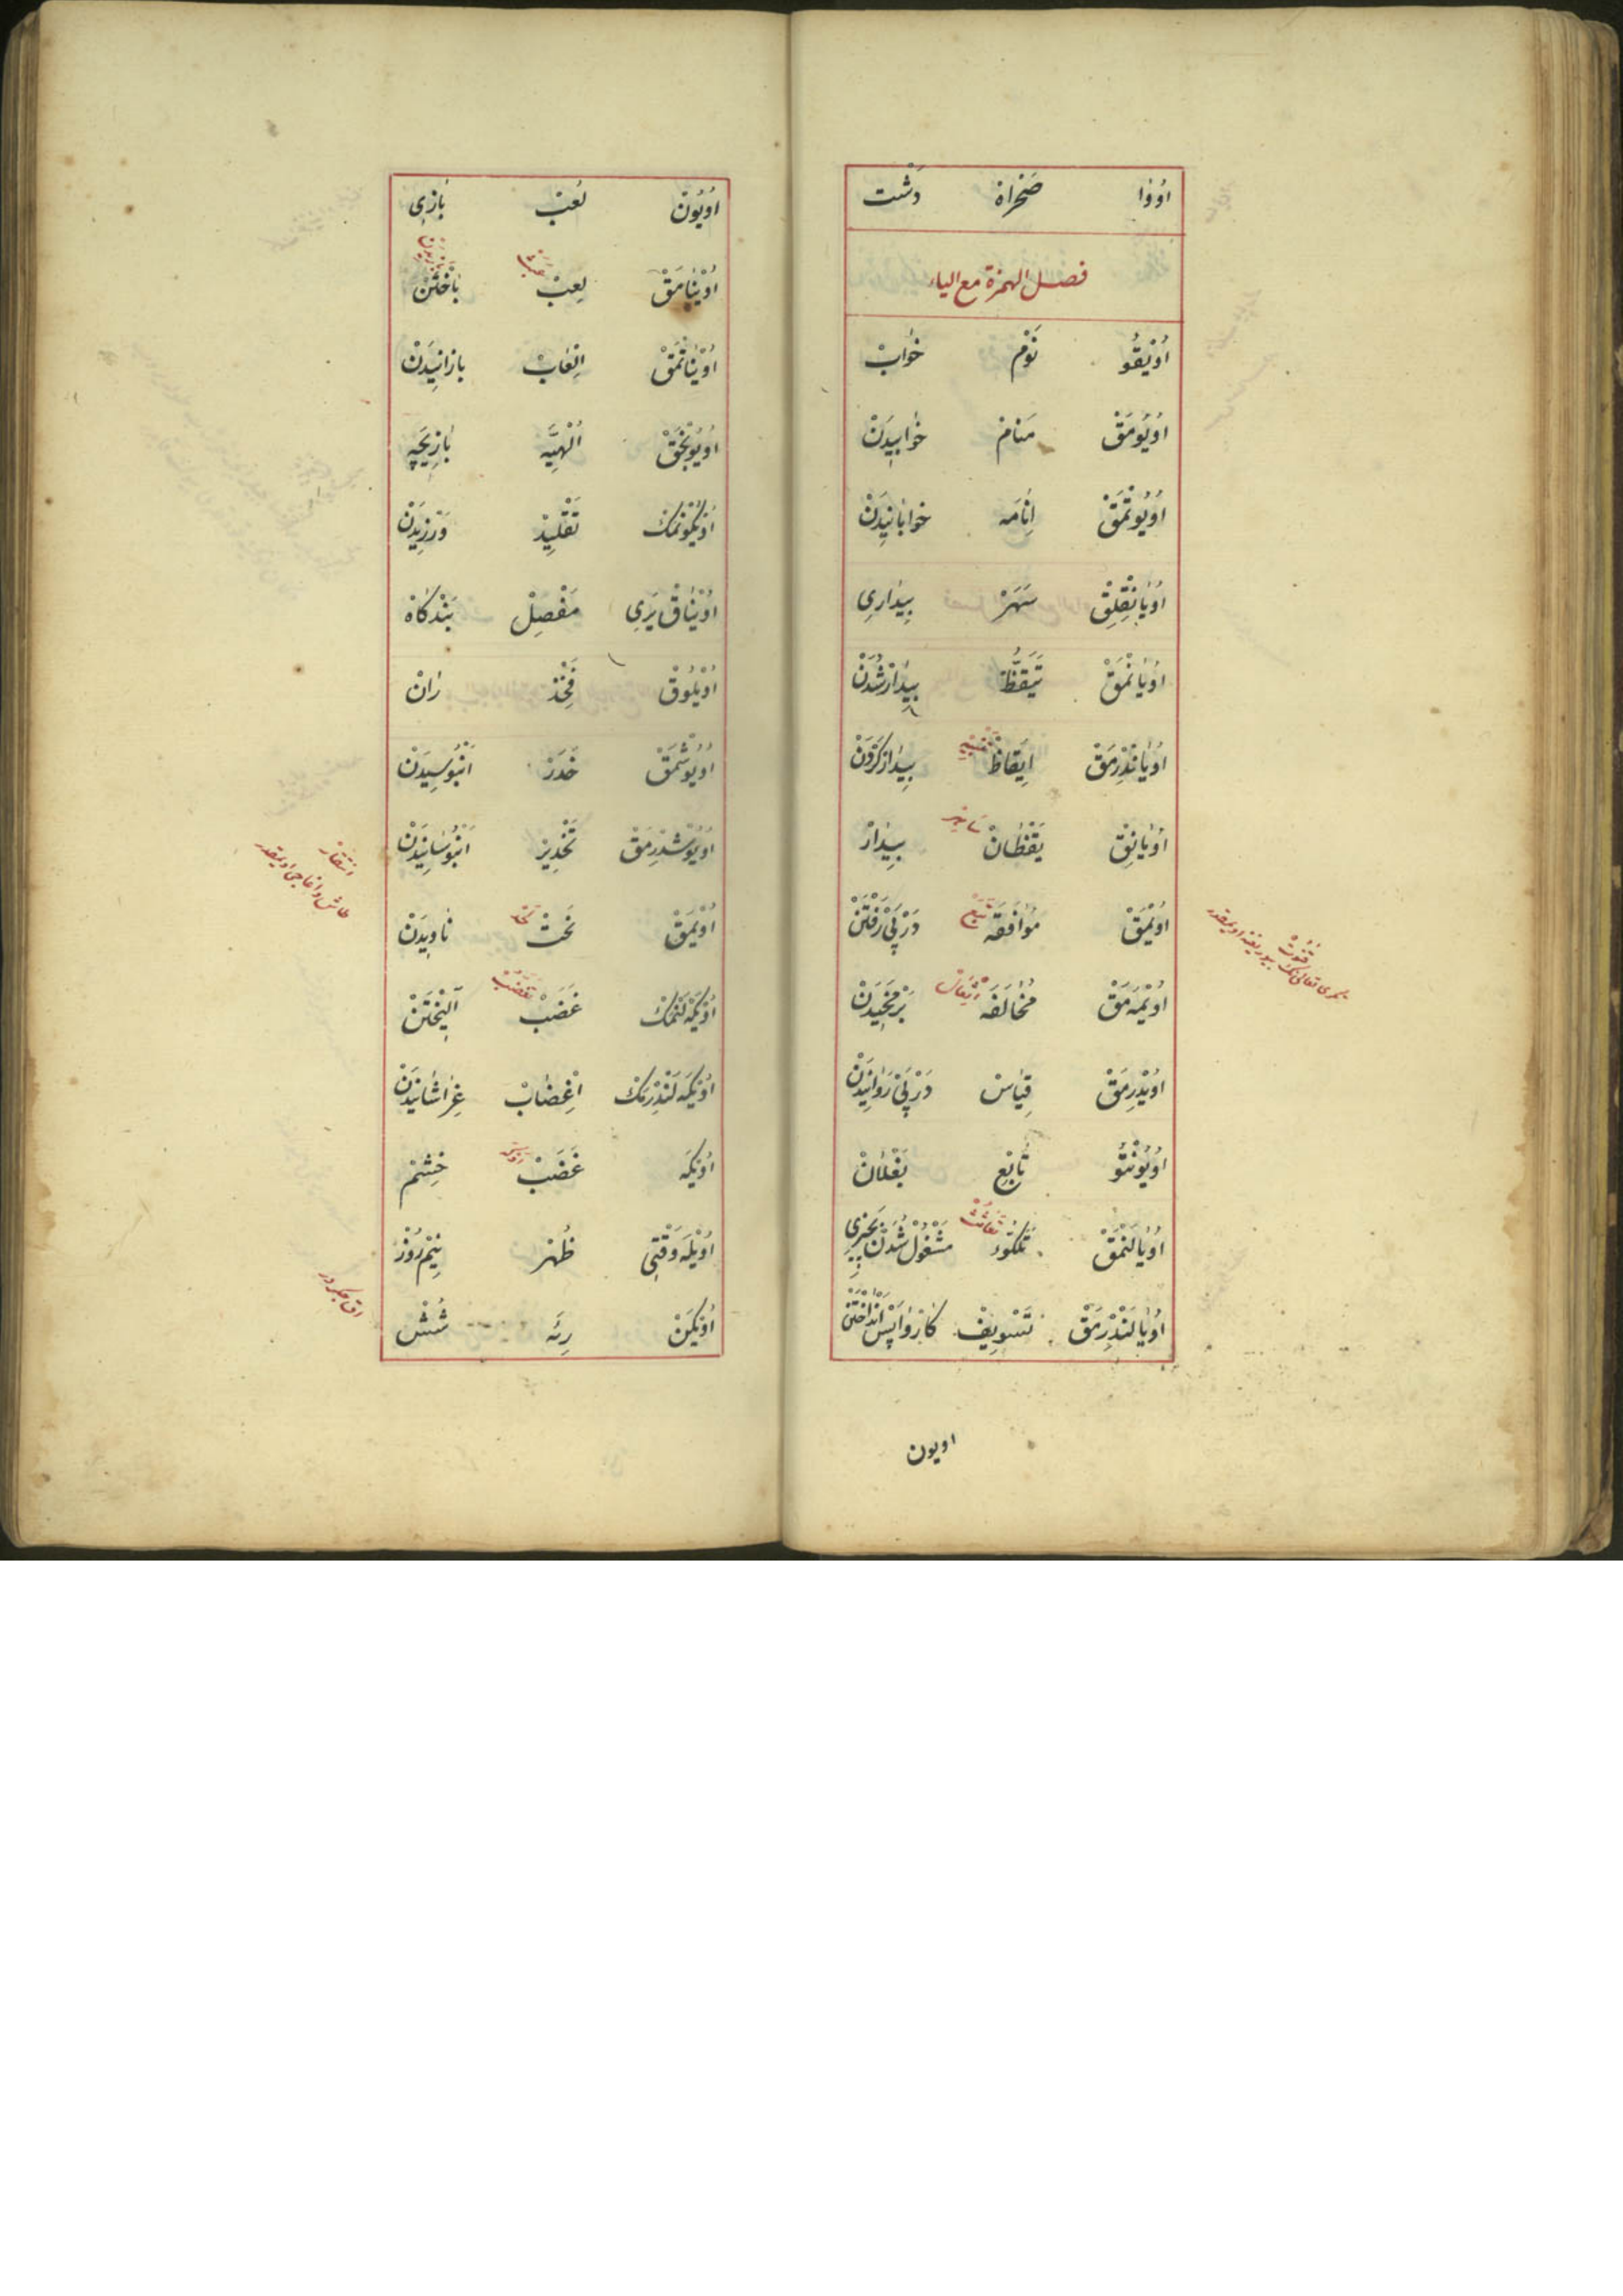 اُوْوَا صَحْرَاءْ دَشْت
فصل الهمزة مع الياء
اُوْيْقُو نَوْمْ خَوابْ
اُويُومَقْ مَنَامْ خَوابِيدَنْ
اُويُوتْمَقْ اِنَامَه خَوابَانِيدَنْ
اُويَانِقْلِقْ سَهَرْ بِيدَارِي
اُويَانْمَقْ تَيَقُّظْ بِيدَارْ شُدَنْ
اُويَانْدِرْمَقْ اِيقَاظْ تَنْبِيه بِيدَارْ كَرْدَنْ
اُويَانِقْ يَقْظَانْ سَاهِر بِيدَارْ
اُويْمَقْ مُوَافَقَه تَبَعْ دَرْ پَيْ رَفْتَنْ
اُويْمَه مَقْ مُخَالَفَه بَرْمَخِيدَنْ
اُويْدِرْمَقْ قِيَاسْ دَرْ پَيْ رَوَانِيدَنْ
اُويُونْتُو تَابِعْ
اُويَالَنْمَقْ تَلَكُّؤ مَشْغُولْ شُدَنْ بَچِيزِي
اُويَالَنْدِرْمَقْ تَسْوِيفْ كَارْ وَاپَسْ اَنْدَاخْتَنْ
اويون
اُويُونْ لُعَبْ بَازِي
اُويْنَامَقْ لَعِبْ بَاخْتَنْ
اُويْنَاتْمَقْ اِلْعَابْ بَازَانِيدَنْ
اُويُونْجَقْ اُلْهِيَّه بَازِيچَه
اُويْكُونْمَكْ تَقْلِيدْ وَرْزِيدَنْ
اُويْنَاقْ يَرِي مَفْصِلْ بَنْدْكَاهْ
اُويْلُوقْ فَخِذْ رَانْ
اُويُوشْمَقْ خَدَرْ اَنْبُوسِيدَنْ
اُويُوشْدِرْمَقْ تَخْدِيرْ اَنْبُوسَانِيدَنْ
اُويْمَقْ نَحْتْ نَاوِيدَنْ
اُويْكَه لَنْمَكْ غَضَبْ تَغَضُّبْ آلِيخْتَنْ
اُويْكَه لَنْدِرْمَكْ اِغْضَابْ غِرَاشَانِيدَنْ
اُويْكَه غَضَبْ خِشْمْ
اُويْلَه وَقْتِي ظُهْر نِيمْ رُوزْ
اُويْكَنْ رِئَه شُشْ
اق جكردر